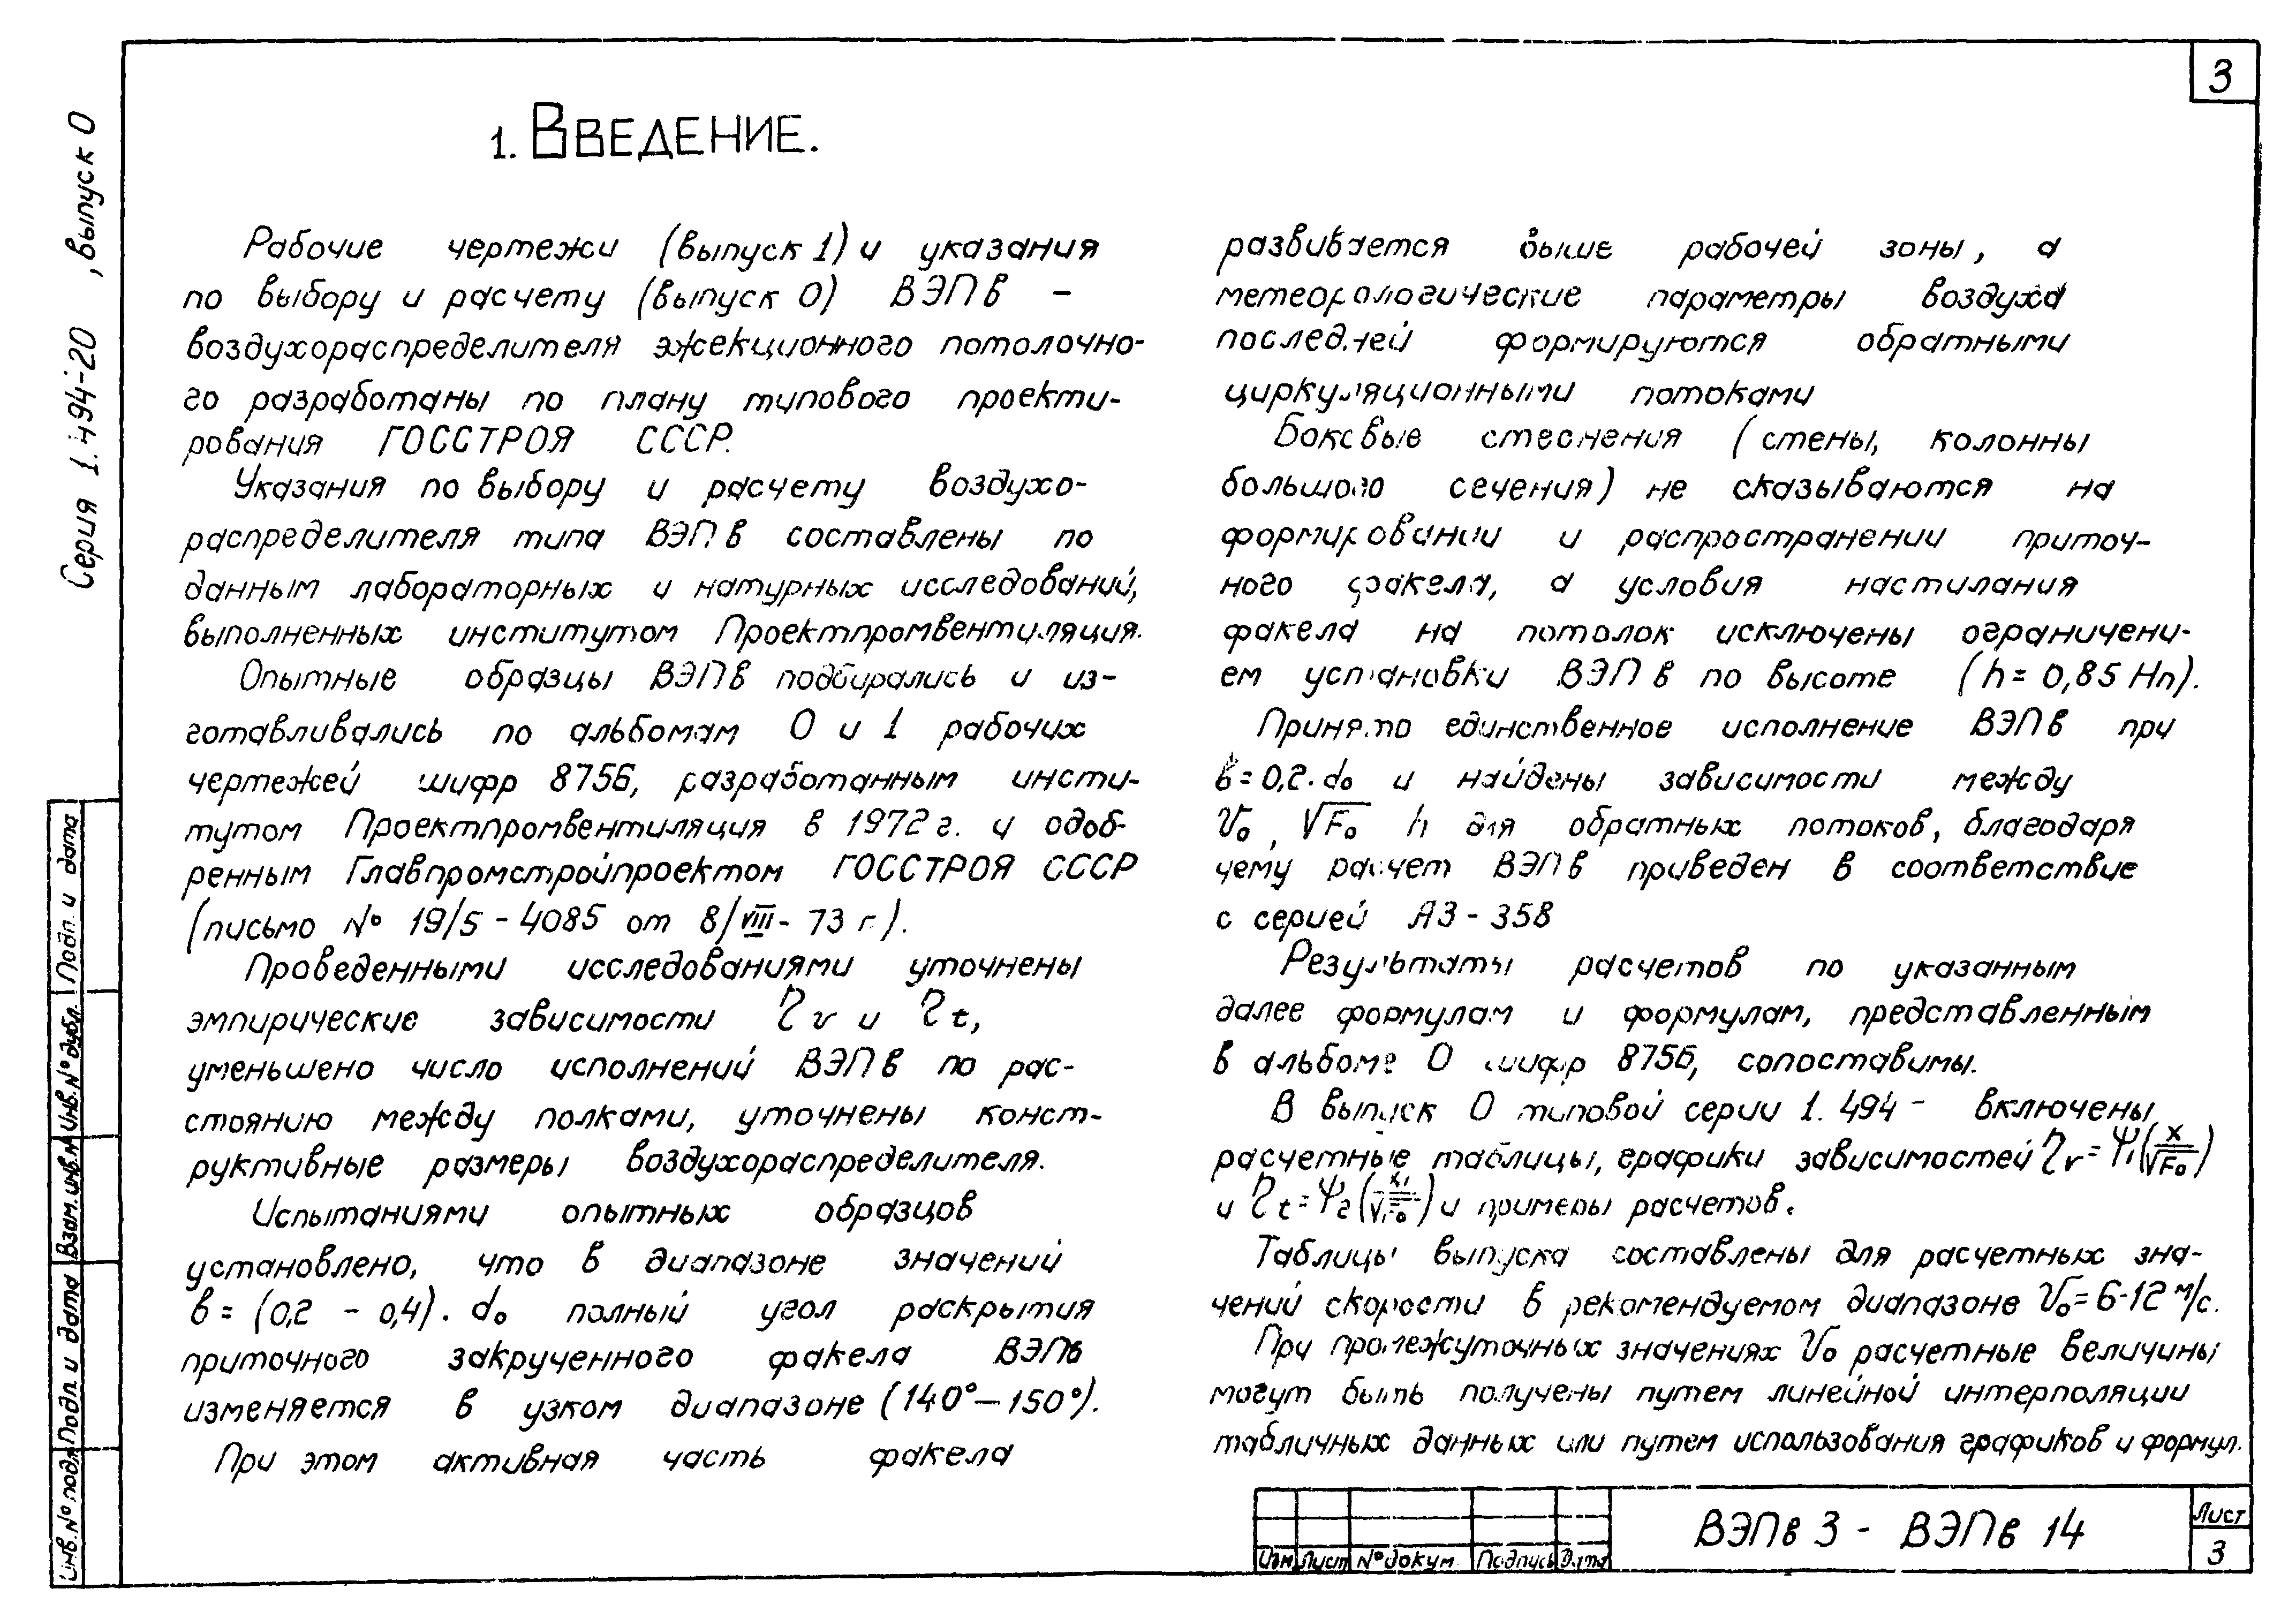 3
1. ВВЕДЕНИЕ.
Рабочие чертежи (выпуск 1) и указания
по выбору и расчету (выпуск 0) ВЭПв –
воздухораспределителя эжекционного потолочно-
го разработаны по плану типового проекти-
рования ГОССТРОЯ СССР.
Указания по выбору и расчету воздухо-
распределителя типа ВЭПв составлены по
данным лабораторных и натурных исследований,
выполненных институтом Проектпромвентиляция.
Опытные образцы ВЭПв подбирались и из-
готавливались по альбомам 0 и 1 рабочих
чертежей шифр 8756, разработанным инсти-
тутом Проектпромвентиляция в 1972 г. и одоб-
ренным Главпромстройпроектом ГОССТРОЯ СССР
(письмо № 19/5 - 4085 от 8/VIII - 73 г.).
Проведенными исследованиями уточнены
эмпирические зависимости η v и η t,
уменьшено число исполнений ВЭПв по рас-
стоянию между полками, уточнены конст-
руктивные размеры воздухораспределителя.
Испытаниями опытных образцов
установлено, что в диапазоне значений
в = (0,2 - 0,4) · d₀ полный угол раскрытия
приточного закрученного факела ВЭПв
изменяется в узком диапазоне (140° – 150°).
При этом активная часть факела
развивается выше рабочей зоны, а
метеорологические параметры воздуха
последней формируются обратными
циркуляционными потоками
Боковые стеснения (стены, колонны
большого сечения) не сказываются на
формировании и распространении приточ-
ного факела, а условия настилания
факела на потолок исключены ограничени-
ем установки ВЭПв по высоте (h = 0,85 Нп).
Принято единственное исполнение ВЭПв при
в = 0,2 · d₀ и найдены зависимости между
V₀, √F₀ h для обратных потоков, благодаря
чему расчет ВЭПв приведен в соответствие
с серией А3 - 358
Результаты расчетов по указанным
далее формулам и формулам, представленным
в альбоме 0 шифр 8756, сопоставимы.
В выпуск 0 типовой серии 1. 494 - включены
расчетные таблицы, графики зависимостей η v = Ψ₁(x/√F₀)
и η t = Ψ₂(x₁/√F₀) и примеры расчетов.
Таблицы выпуска составлены для расчетных зна-
чений скорости в рекомендуемом диапазоне V₀ = 6-12 м/с.
При промежуточных значениях V₀ расчетные величины
могут быть получены путем линейной интерполяции
табличных данных или путем использования графиков и формул.
Изм Лист № докум Подпись Дата
ВЭПв 3 - ВЭПв 14
Лист
3
Серия 1.494-20 , выпуск 0
Инв. № подл Подп и дата Взам. инв. № Инв. № дубл. Подп. и дата